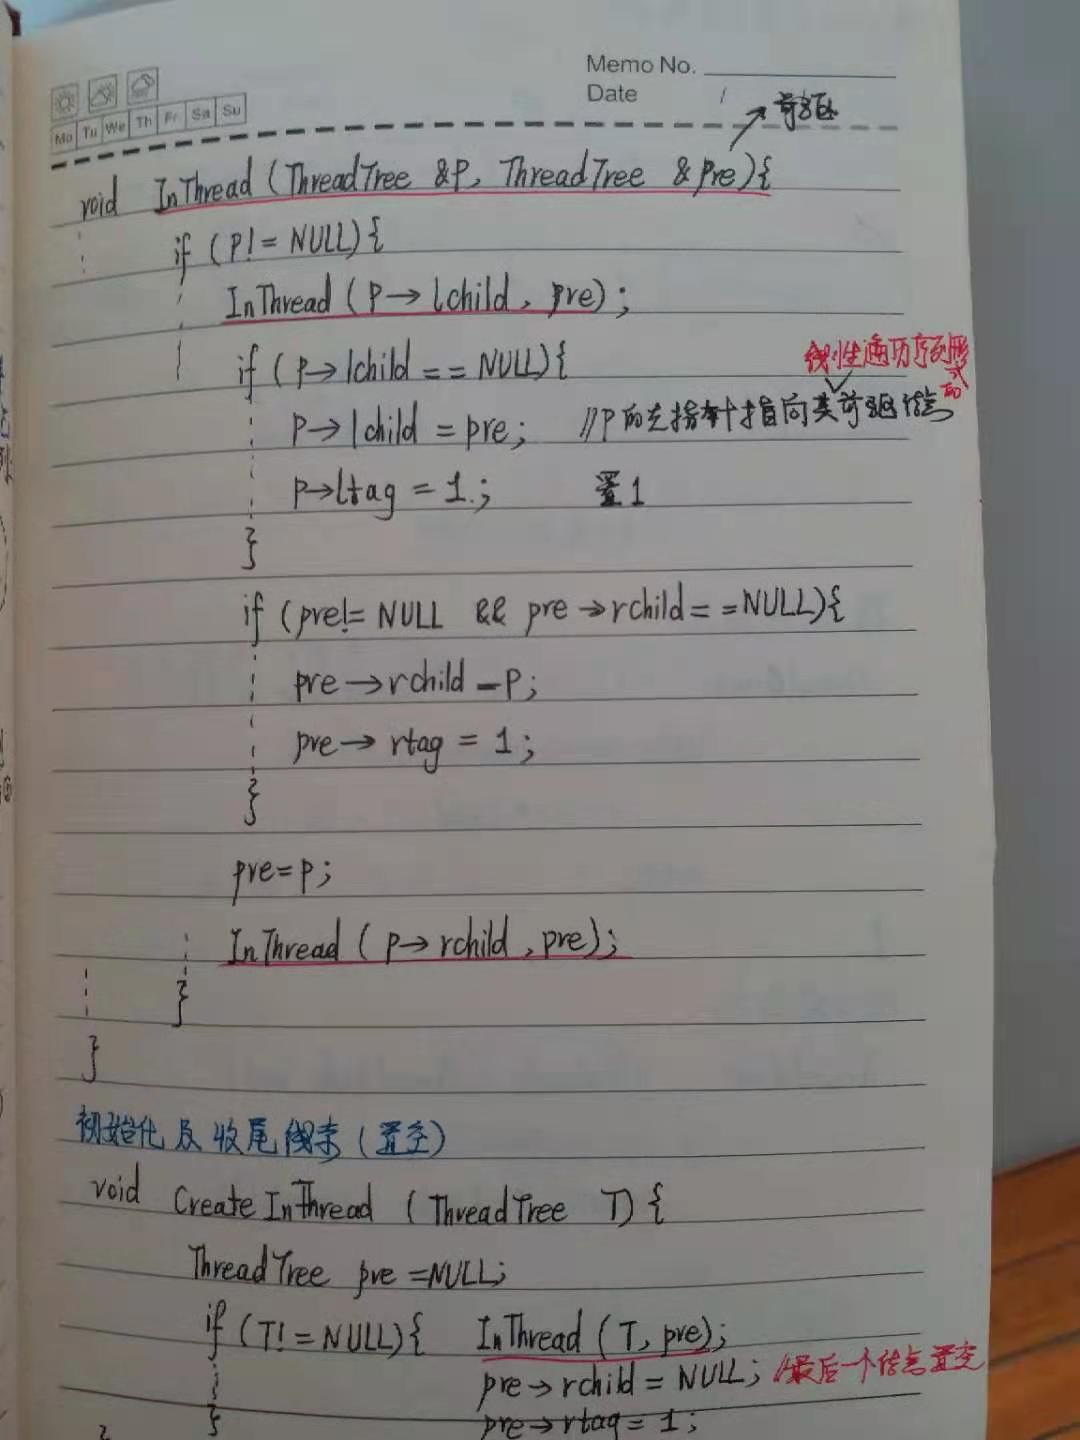 Memo No.
Date /
Mo Tu We Th Fr Sa Su
前驱
void InThread (ThreadTree &P, ThreadTree &pre){
if (P!= NULL){
InThread (P→lchild, pre);
if (P→lchild == NULL){
线性遍历序列形式的
P→lchild = pre; //P的左指针指向其前驱结点
P→ltag = 1; 置1
}
if (pre!= NULL && pre→rchild==NULL){
pre→rchild =P;
pre→rtag = 1;
}
pre=p;
InThread (P→rchild, pre);
}
}
初始化及收尾线索(置空)
void CreateInThread (ThreadTree T){
ThreadTree pre =NULL;
if (T!= NULL){ InThread (T, pre);
pre→rchild = NULL; //最后一个结点置空
} pre→rtag = 1;